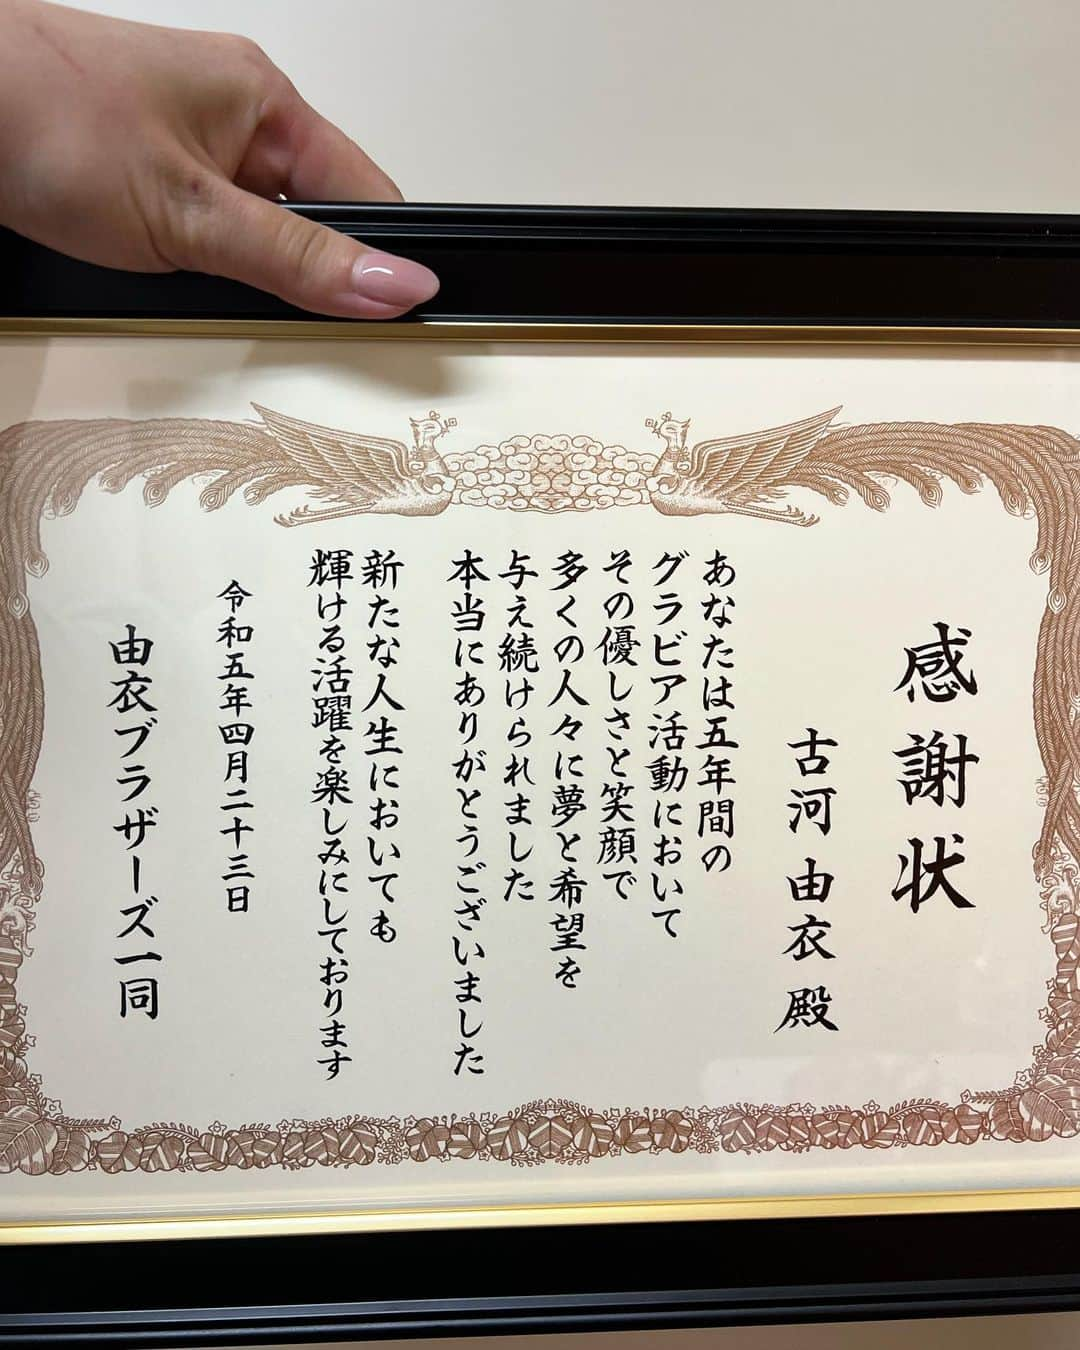 感謝状
古河由衣殿
あなたは五年間の
グラビア活動において
その優しさと笑顔で
多くの人々に夢と希望を
与え続けられました
本当にありがとうございました
新たな人生においても
輝ける活躍を楽しみにしております
令和五年四月二十三日
由衣ブラザーズ一同